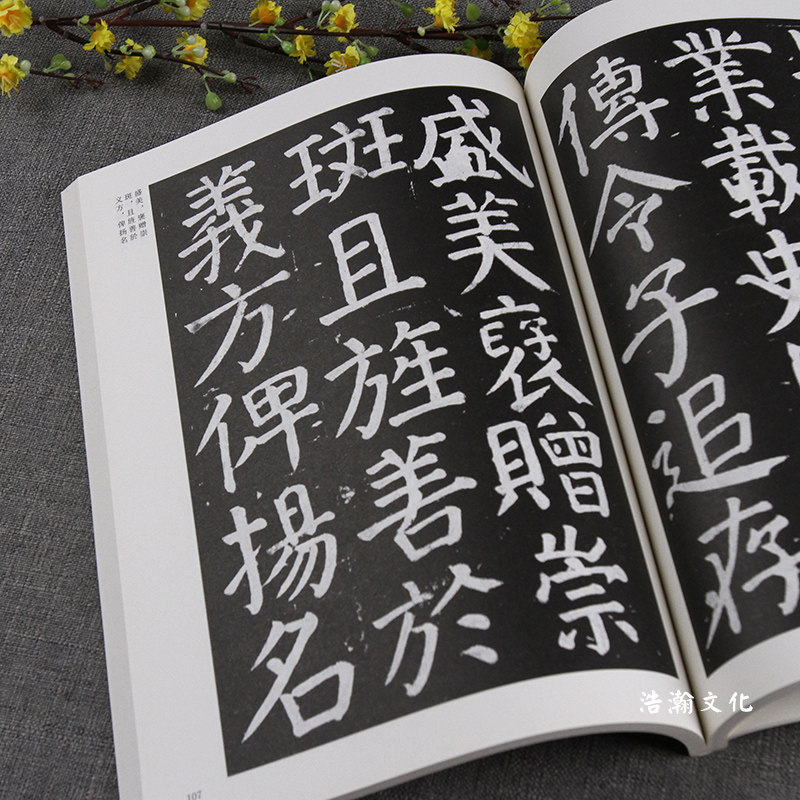 業載史
傳令子追存
盛美褒贈崇
斑且旌善於
義方俾揚名
盛美，褒赠崇
斑，且旌善於
义方，俾扬名
107
浩瀚文化